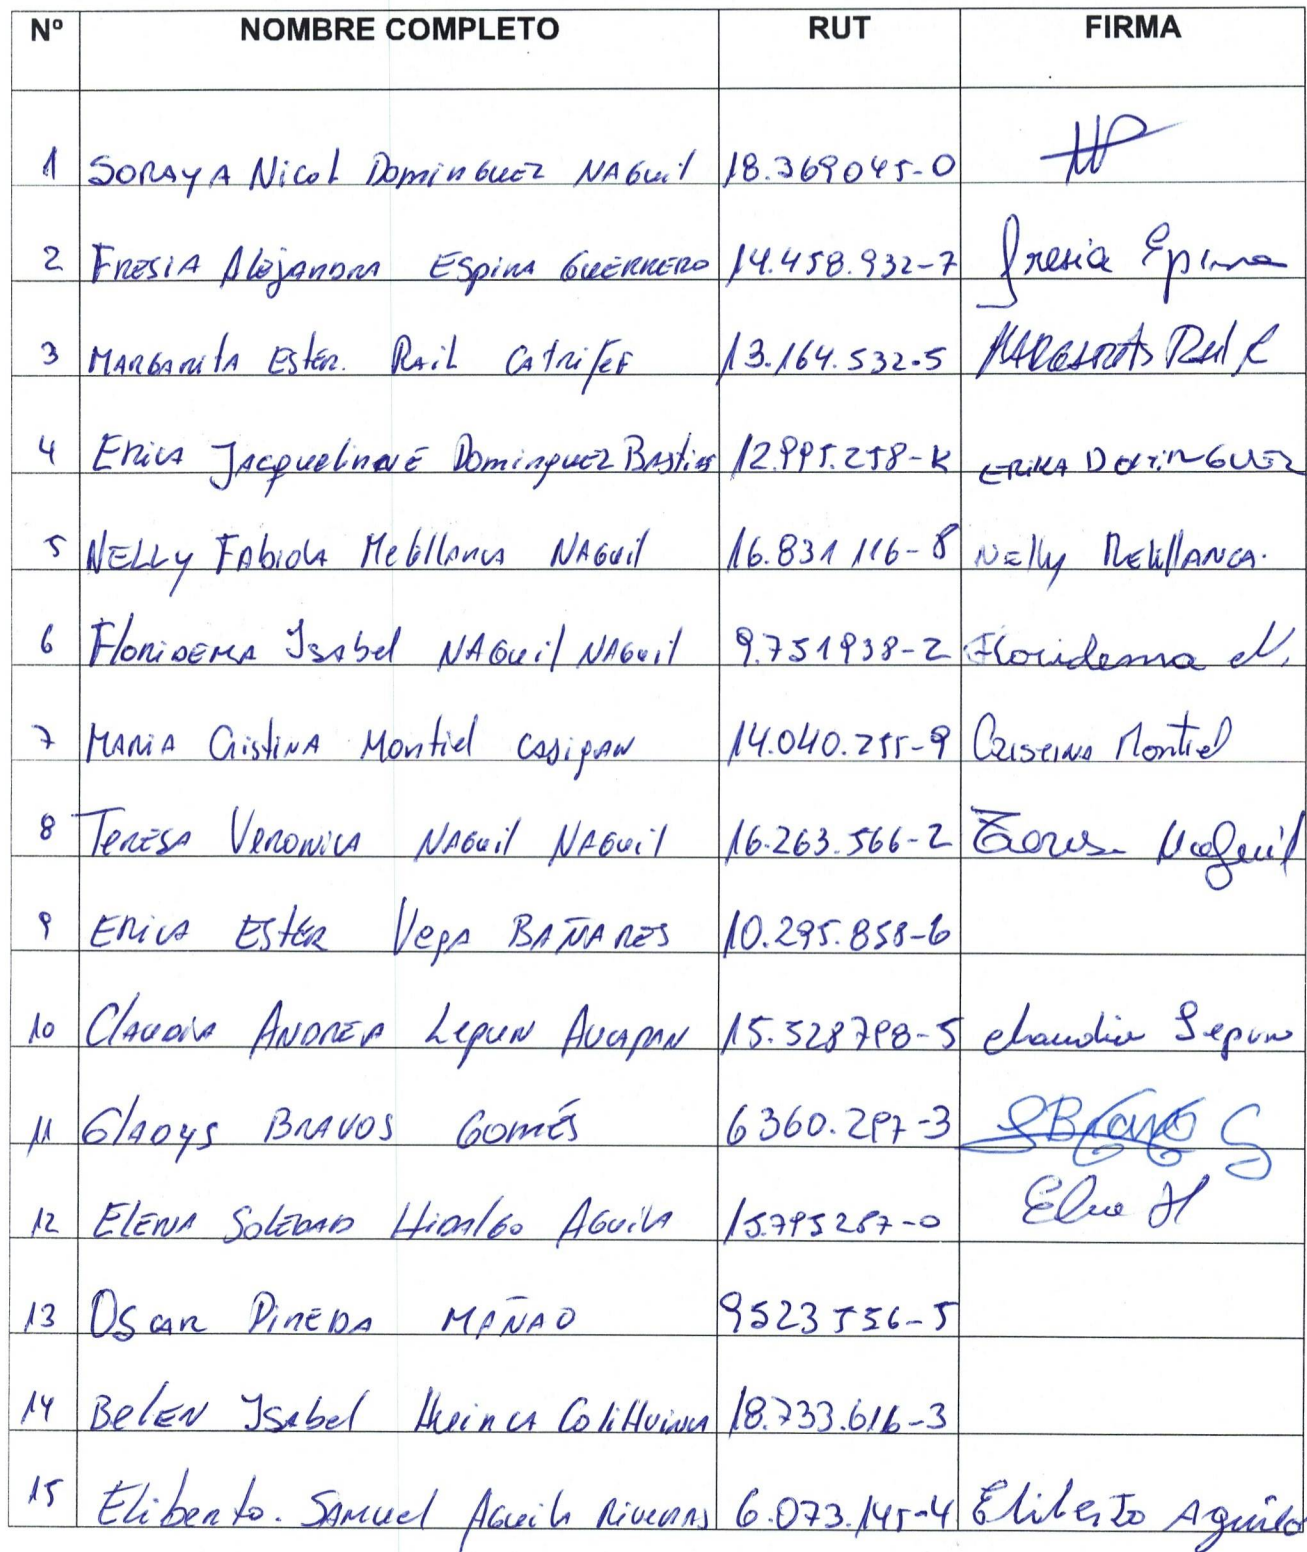 Nº NOMBRE COMPLETO RUT FIRMA
1 SORAYA Nicol Dominguez NAGuil 18.369045-0
2 FRESIA Alejandra Espina Guerrero 14.458.932-7 Fresia Epinna
3 MARGARITA Ester. Rail Catrifef 13.164.532-5 MARGARITA Rail C
4 Erica Jacqueline Dominguez Bastias 12.995.258-K ERIKA DOMINGUEZ
5 NELLY Fabiola Melillanca NAGuil 16.831 116-8 Nelly MELILLANCA.
6 Floridema Isabel NAGuil NAGuil 9.751938-2 Floridema N.
7 MARIA Cristina Montiel Casipan 14.040.255-9 Cristina Montiel
8 Teresa Veronica NAGuil NAGuil 16.263.566-2 Naguil
9 Erica Ester Vega BAÑARES 10.295.858-6
10 Claudia ANDREA Lepun Aucapan 15.328798-5 Claudia Lepun
11 Gladys BRAVOS Gomés 6360.297-3 Bravo G
12 ELENA SOLEDAD Hidalgo Aguila 15.795287-0 H
13 OSCAR PINEDA MAÑAO 9523556-5
14 BELEN Isabel Huinca Colihuinca 18.733.616-3
15 Eliberto. SAMUEL Aguila Riveras 6.073.145-4 Eliberto Aguila